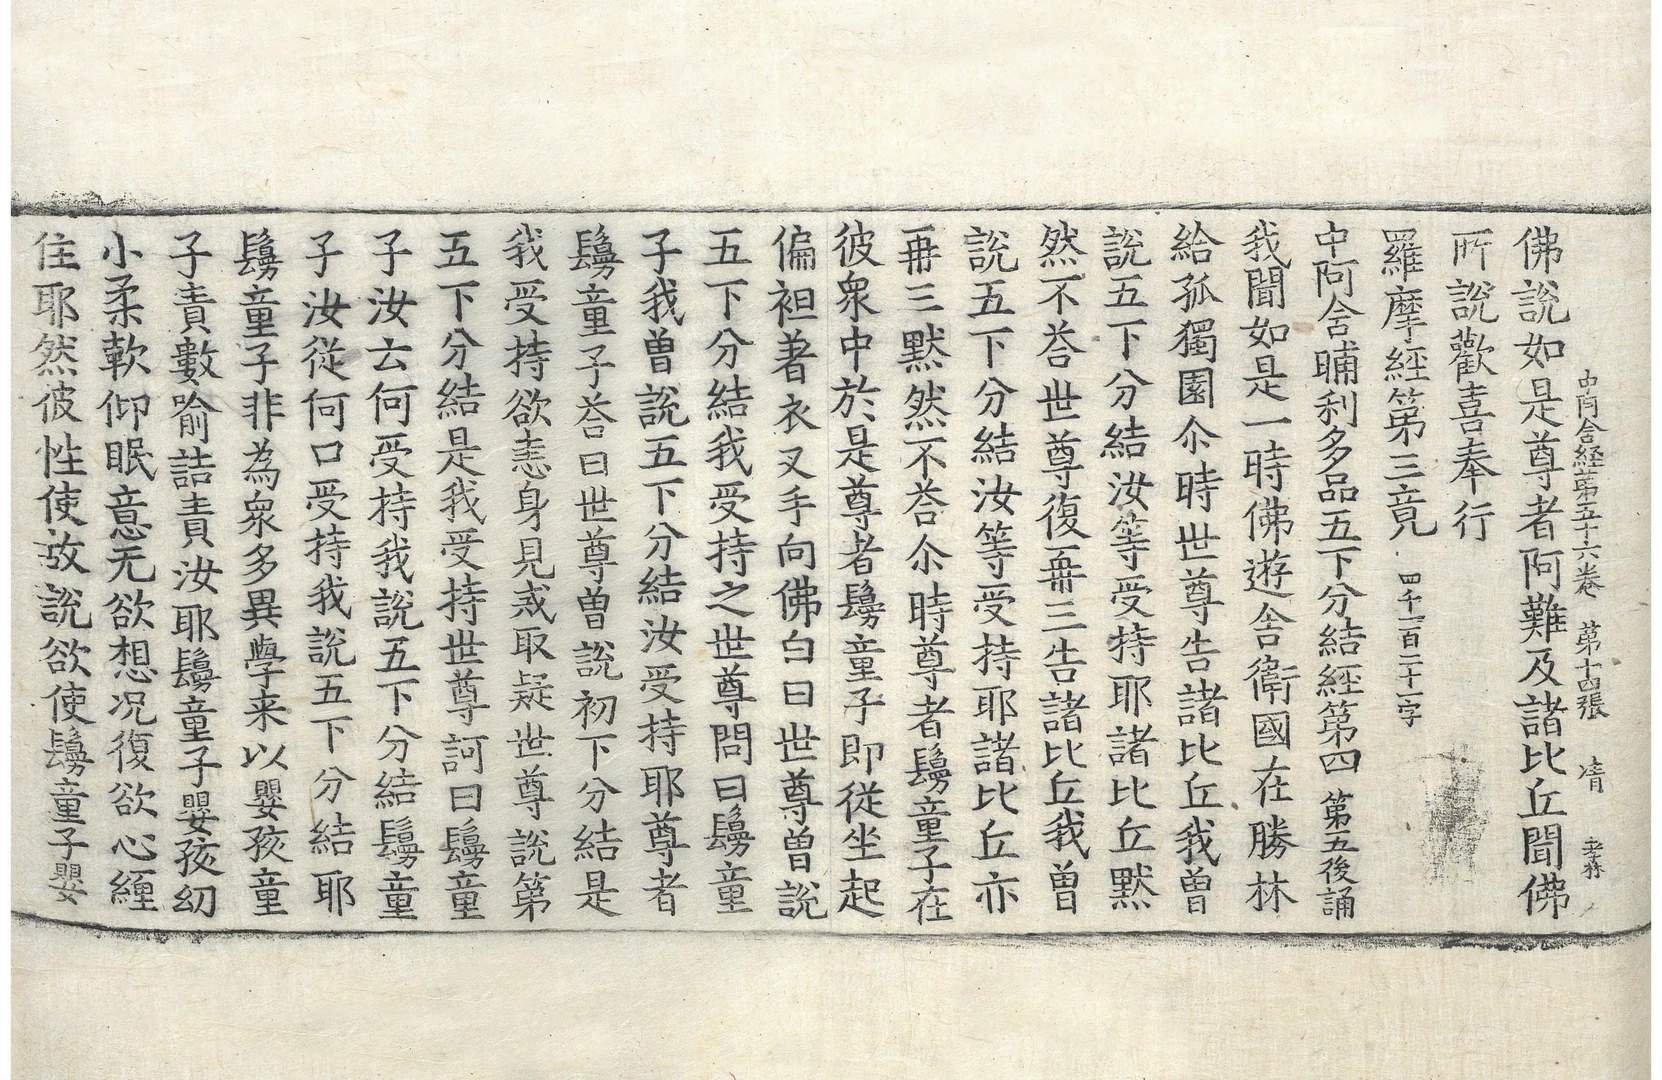 中阿含経苐五十六巻　第十四張　清　孝林
佛說如是尊者阿難及諸比丘聞佛
所說歡喜奉行
羅摩經第三竟　四千一百二十一字
中阿含晡利多品五下分結經第四　第五後誦
我聞如是一時佛遊舍衛國在勝林
給孤獨園尒時世尊告諸比丘我曽
說五下分結汝等受持耶諸比丘默
然不荅世尊復再三告諸比丘我曽
說五下分結汝等受持耶諸比丘亦
再三默然不荅尒時尊者鬘童子在
彼衆中於是尊者鬘童子即從坐起
偏袒著衣叉手向佛白曰世尊曽說
五下分結我受持之世尊問曰鬘童
子我曽說五下分結汝受持耶尊者
鬘童子荅曰世尊曽說初下分結是
我受持欲恚身見戒取疑世尊說第
五下分結是我受持世尊訶曰鬘童
子汝云何受持我說五下分結鬘童
子汝從何口受持我說五下分結耶
鬘童子非為衆多異學来以嬰孩童
子責數喻詰責汝耶鬘童子嬰孩幼
小柔軟仰眠意无欲想况復欲心纏
住耶然彼性使故說欲使鬘童子嬰